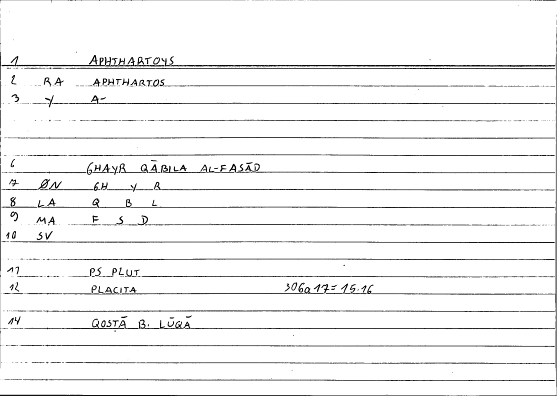 1 APHTHARTOYS
2 RA APHTHARTOS
3 Y A-
6 GHAYR QĀBILA AL-FASĀD
7 ØN GH Y R
8 LA Q B L
9 MA F S D
10 SV
11 PS PLUT
12 PLACITA 306a17=15.16
14 QOSṬĀ B. LŪQĀ